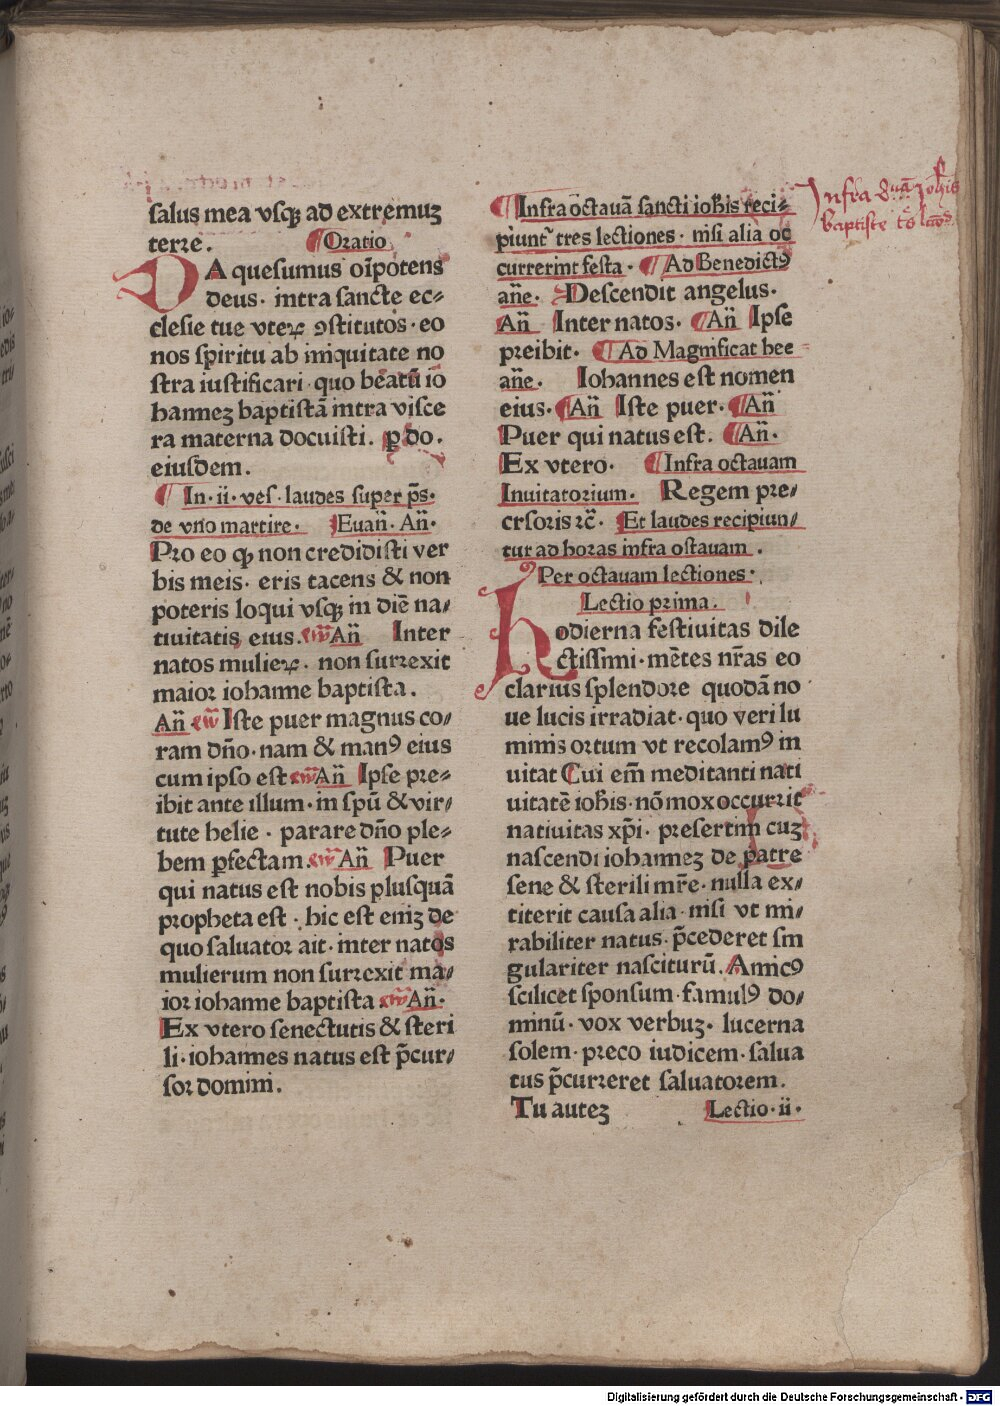 salus mea vsqꝫ ad extremuꝫ
terre. Oratio
DA quesumus oīpotens
deus· intra sancte ec⸗
clesie tue vteꝝ ꝯstitutos·eo
nos spiritu ab iniquitate no
stra iustificari·quo beatū io
hanneꝫ baptistā intra visce
ra materna docuisti. ꝑ do.
eiusdem.
In·ii·ves·laudes super p̄s·
de vno martire. Euan̄· An̄·
Pro eo qꝫ non credidisti ver
bis meis· eris tacens & non
poteris loqui vsqꝫ in diē na⸗
tiuitatis eius. An̄ Inter
natos mulieꝝ· non surrexit
maior iohanne baptista.
An̄ Iste puer magnus co⸗
ram dn̄o·nam & manꝰ eius
cum ipso est An̄ Ipse pre⸗
ibit ante illum·in spū & vir⸗
tute helie· parare dn̄o ple⸗
bem ꝑfectam An̄ Puer
qui natus est nobis plusquā
propheta est· hic est eniꝫ de
quo saluator ait·inter natos
mulierum non surrexit ma⸗
ior iohanne baptista An̄·
Ex vtero senectutis & steri
li·iohannes natus est p̄cur⸗
sor domini.
Infra octauā sancti ioh̄is reci⸗
piunt᷑ tres lectiones· nisi alia oc
currerint festa· Ad Benedictꝰ
an̄e. Descendit angelus·
An̄ Inter natos. An̄ Ipse
preibit. Ad Magnificat hee
an̄e. Iohannes est nomen
eius. An̄ Iste puer. An̄
Puer qui natus est. An̄.
Ex vtero. Infra octauam
Inuitatorium. Regem pre⸗
crsoris ꝛc̄. Et laudes recipiun⸗
tur ad horas infra ostauam.
Per octauam lectiones·
Lectio prima.
Hodierna festiuitas dile
ctissimi·mētes nr̄as eo
clarius splendore quodā no
ue lucis irradiat·quo veri lu
minis ortum vt recolamꝰ in
uitat Cui em̄ meditanti nati
uitatē ioh̄is·nō mox occurrit
natiuitas xp̄i· presertim cuꝫ
nascendi iohanneꝫ de patre
sene & sterili mr̄e·nulla ex⸗
titerit causa alia·nisi vt mi⸗
rabiliter natus·p̄cederet sin
gulariter nasciturū. Amicꝰ
scilicet sponsum·famulꝰ do⸗
minū·vox verbuꝫ·lucerna
solem·preco iudicem·salua
tus p̄curreret saluatorem.
Tu auteꝫ Lectio·ii·
Infra 8uā Johīs
baptiste
Digitalisierung gefördert durch die Deutsche Forschungsgemeinschaft - DFG